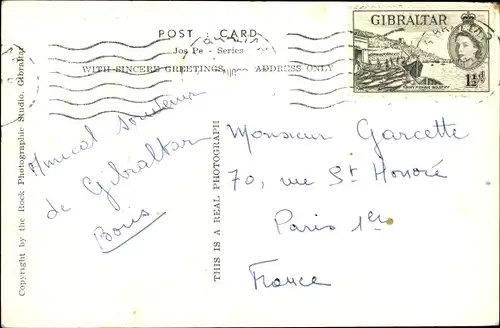 POST CARD
Jos Pe - Series
WITH SINCERE GREETINGS
ADDRESS ONLY
GIBRALTAR
1½d
Copyright by the Rock Photographic Studio, Gibraltar
Amical souvenir
de Gibraltar
Boris
THIS IS A REAL PHOTOGRAPH
Monsieur Garcette
70, rue St Honoré
Paris 1er
France